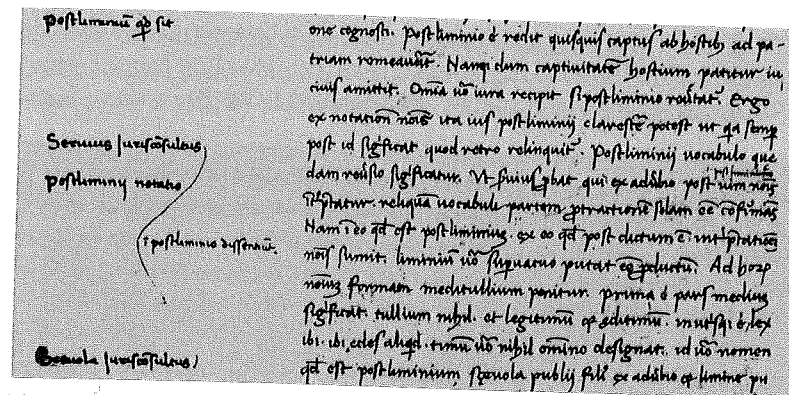 postliminiũ qđ sit
Seruius Iurisc̃õsultus
postliminij notatio
i postliminio dissertũt.
Sceuola Iurisc̃õsultus
one cognosci. postliminio ẽ redit quisquis captus ab hostib; ad pa-
triam romeauũt. Namq; dum captiuitatẽ hostium patitur iu
ciuis amittit. Omĩa uõ iura recipit si postliminio rẽũtat̃. Ergo
ex notatiõn nõis ita ius postliminij clarescẽ potest ut qa semp
post id sigficat quod retro relinquit̃. Postliminij uocabulo que
dam reũsio sigficatur. Vt Seruius pbat qui ex aduẽbio post uim nõis
ĩtptatur. reliquã uocabuli partem ptractionẽ solam eẽ cõfirmãs
Nam ĩ eo qđ est postliminiuz. ex eo qđ post dictum ẽ. intptationẽ
nõis sumit. liminiũ uõ supuacuo putat eẽ pductũ. Ad horz
nominz formam meditullium ponitur. prima ẽ pars mediuz
sigficat. tullium nihil. et legitimũ & editimũ. in utisqi ẽ lex
ibi. ibi edes aliqđ. timũ uõ nihil omĩno designat. id uõ nomen
qđ est postliminium sceuola publij filĩ ex aduẽbio & limine pu